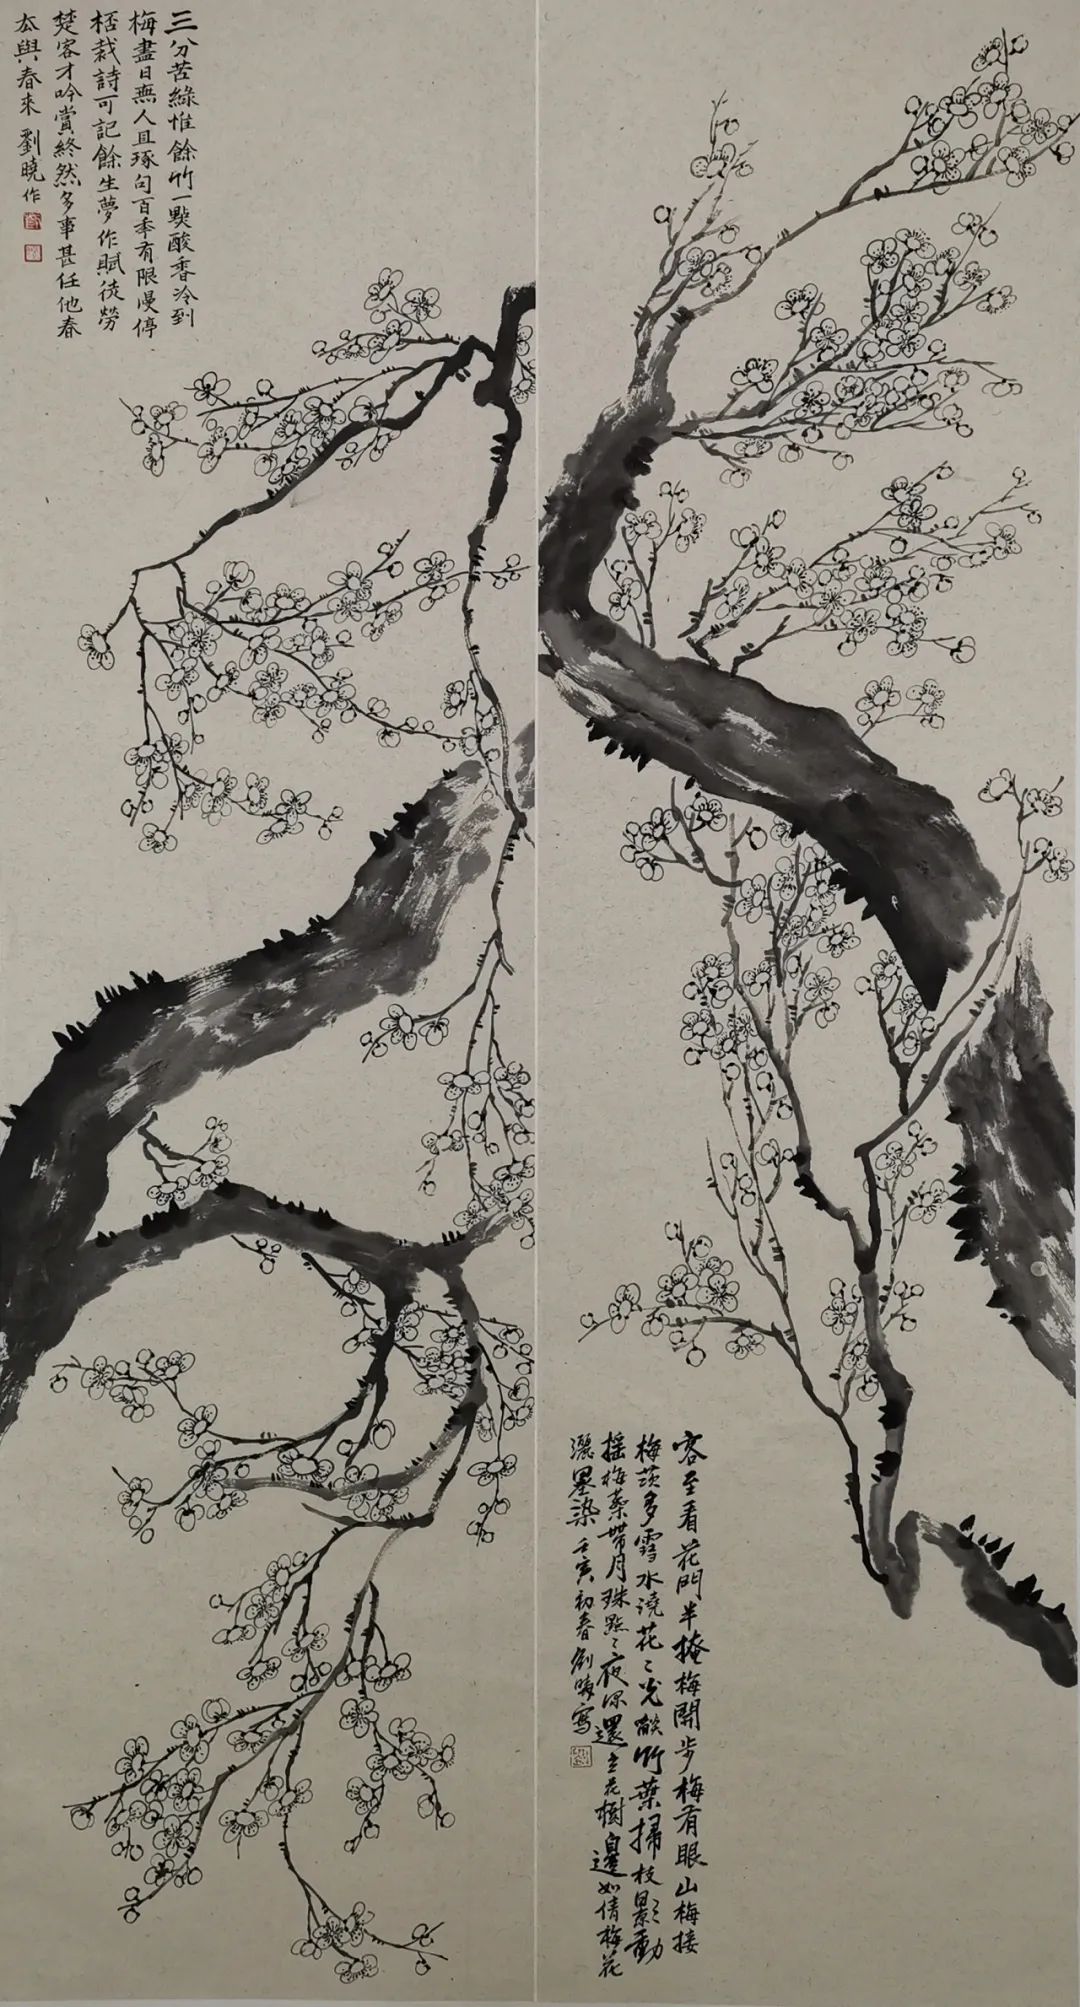 三分苦綠惟餘竹一點酸香冷到
梅盡日無人且琢句百年有限漫停
桮栽詩可記餘生夢作賦徒勞
楚客才吟賞終然多事甚任他春
去與春來 劉曉作
客至看花門半掩梅開步梅有眼山梅接
梅茨多雪水澆花〻光餤竹葉掃枝影動
搖梅蘂帶月珠點〻夜深還立花樹邊如倩梅花
灑墨染 壬寅初春 寫